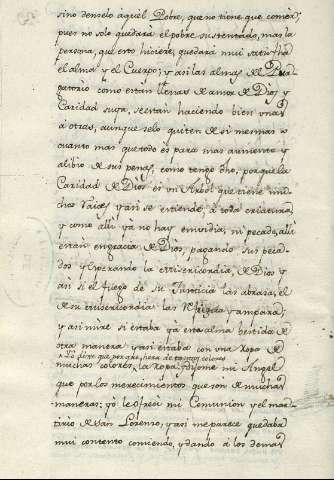 sino denselo àquel Pobre, que no tiene que comèr,
pues no solo quedarà el pobre sustentado, mas la
persona, que esto hiciere, quedarà mui satisfha
el alma y el Cuerpo; y asi las almas del Pur
gatorio como estàn llenas de amor de Dios, y
Caridad suya, se estàn haciendo bien unas
à otras, aunque selo quiten de si mesmas
quanto mas que todo es para mas aumento y
alibio de sus penas, como tengo dho, porque la
Caridad de Dios es un Arbol que tiene mu
chos raices y asi se estiende, à toda criatura,
y como allì ya no hay envidia, ni pecado, alli
estàn engracia de Dios, pagando sus peca
dos y esperando la Misericordia, de Dios y
asi si el fuego de su Justicia las abrasa, el
de su misericordia las y ampara;
y asi mire si estaba ya esta alma bestida de
otra manera y asi estaba con una ropa de
muchas colores, la ropa, dijome mi Angel
que por los merecimientos que son de muchas
maneras: yò le ofreci mi Comunion y el mar
tirio de san Lorenso, y asi me parece quedaba
mui contento comiendo, y dando à los demas